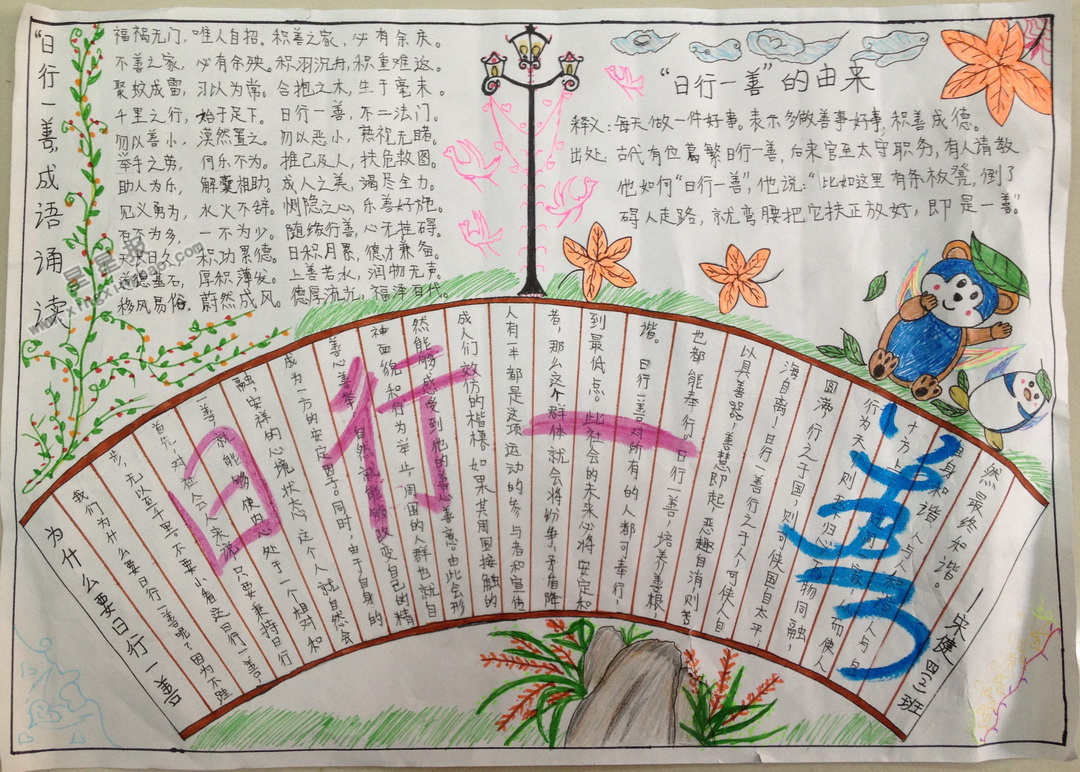 "日行一善"成语诵读
福祸无门，唯人自招。积善之家，必有余庆。
不善之家，必有余殃。积羽沉舟，积重难返。
聚蚊成雷，习以为常。合抱之木，生于毫末。
千里之行，始于足下。日行一善，不二法门。
勿以善小，漠然置之。勿以恶小，熟视无睹。
举手之劳，何乐不为。推己及人，扶危救困。
助人为乐，解囊相助。成人之美，竭尽全力。
见义勇为，水火不辞。恻隐之心，乐善好施。
百不为多，一不为少。随缘行善，心无挂碍。
天长日久，积功累德。日积月累，德才兼备。
道德基石，厚积薄发。上善若水，润物无声。
移风易俗，蔚然成风。德厚流光，福泽百代。
"日行一善"的由来
释义：每天做一件好事。表示多做善事好事，积善成德。
出处：古代有位葛繁日行一善，后来官至太守职务，有人请教
他如何"日行一善"，他说："比如这里有条板凳，倒了
碍人走路，就弯腰把它扶正放好，即是一善"。
日行一善
为什么要日行一善
我们为什么要日行一善呢？因为不跬
步，无以至千里。不要小看这日行一善。
首先，对社会人来说，只要秉持日行
一善，就能够使内心处于一个相对和
融、安祥的心境状态，这个人就自然会
成为一方的安定因子。同时，由于自身的
善心善举，自然就能够改变自己的精
神面貌和行为举止，周围的人群也就自
然能够感受到他的善心善意。由此会形
成人们效仿的楷模。如果其周围接触的
人有一半都是这项运动的参与者和宣传
者，那么这个群体就会将纷争、矛盾降
到最低点。此社会的未来必将安定和
谐。日行一善对所有的人都可奉行，
也都能奉行。日行一善，培养善根
以具善器，善慧即起，恶趣自消，则苦
海自离！日行一善行之于人，可使人自
圆满，行之于国，则可使国自太平；
行为天，则天归心，万物同融，
然，最终和谐。
——宋健 四(三)班